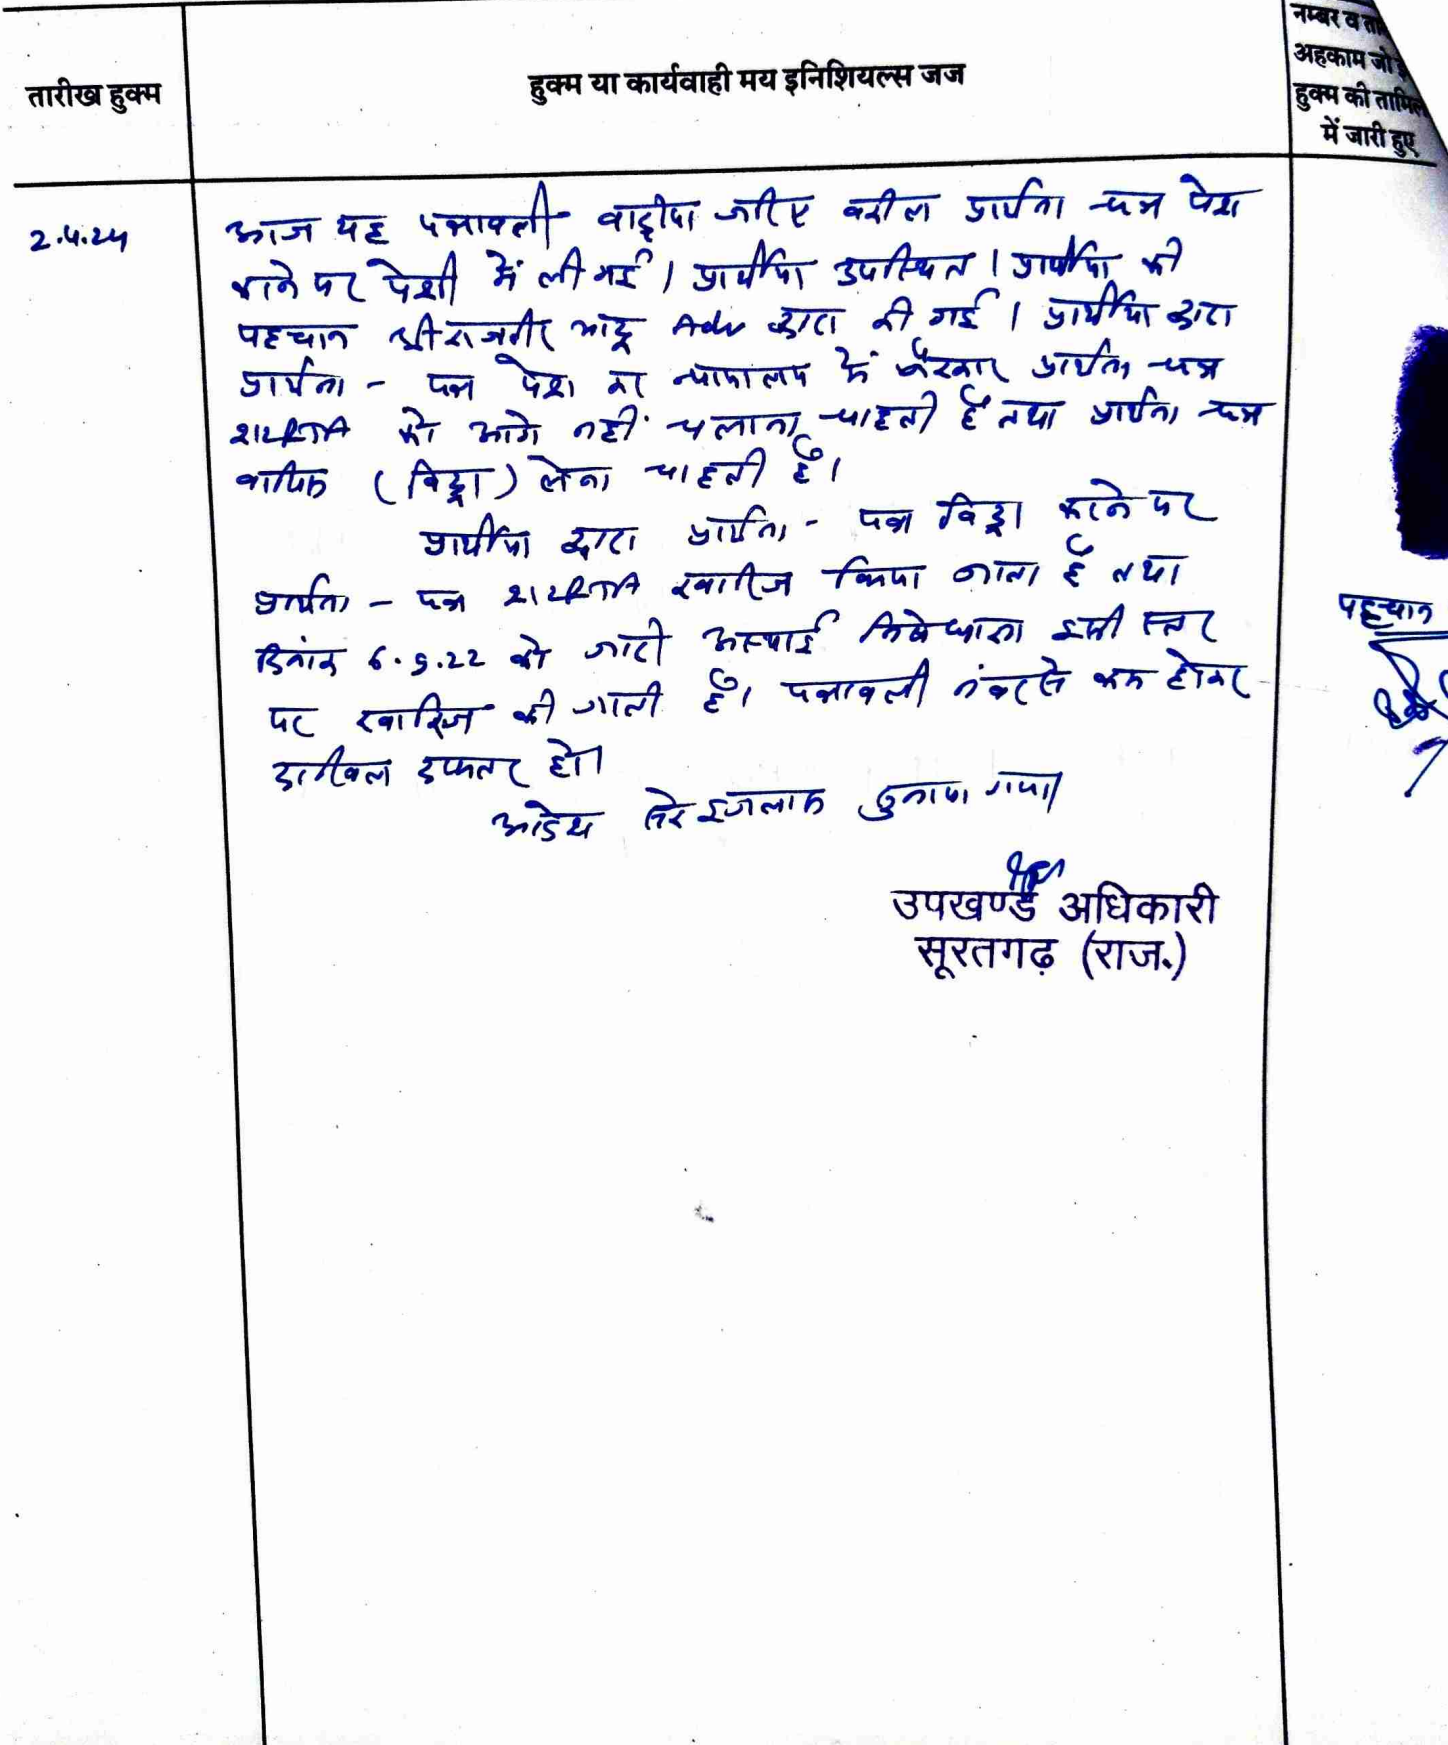 तारीख हुक्म
हुक्म या कार्यवाही मय इनिशियल्स जज
नम्बर व ता
अहकाम जो इ
हुक्म की तामिल
में जारी हुए
2.4.24
आज यह पत्रावली वादीया जरिए वकील प्रार्थना पत्र पेश
करने पर पेशी में ली गई। प्रार्थीया उपस्थित। प्रार्थीया की
पहचान श्री भादू Adv द्वारा की गई। प्रार्थीया द्वारा
प्रार्थना - पत्र पेश कर न्यायालय में प्रार्थना पत्र
212RTA को आगे नहीं चलाना चाहती है तथा प्रार्थना पत्र
वापिस (विड्रा) लेना चाहती है।
प्रार्थीया द्वारा प्रार्थना - पत्र विड्रा करने पर
प्रार्थना - पत्र 212RTA खारीज किया जाता है तथा
दिनांक 6.9.22 को जारी अस्थाई निषेधाज्ञा इसी स्तर
पर खारिज की जाती है। पत्रावली नंबर से कम होकर
दाखिल दफ्तर हो।
आदेश सरे इजलास सुनाया गया।
उपखण्ड अधिकारी
सूरतगढ़ (राज.)
पहचान